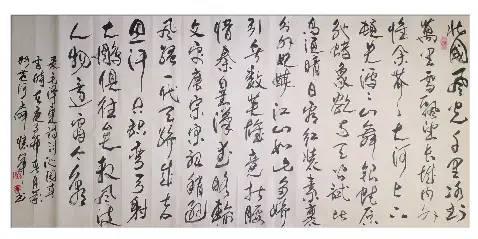 北國風光千里冰封
萬里雪飄望長城內外
惟余莽莽大河上下
頓失滔滔山舞銀蛇原
馳蠟象欲與天公試比
高須晴日看紅裝素裹
分外妖嬈江山如此多嬌
引無數英雄競折腰
惜秦皇漢武略輸
文采唐宗宋祖稍遜
風騷一代天驕成吉
思汗只識彎弓射
大鵰俱往矣數風流
人物還看今朝
毛澤東詞沁園春
雪